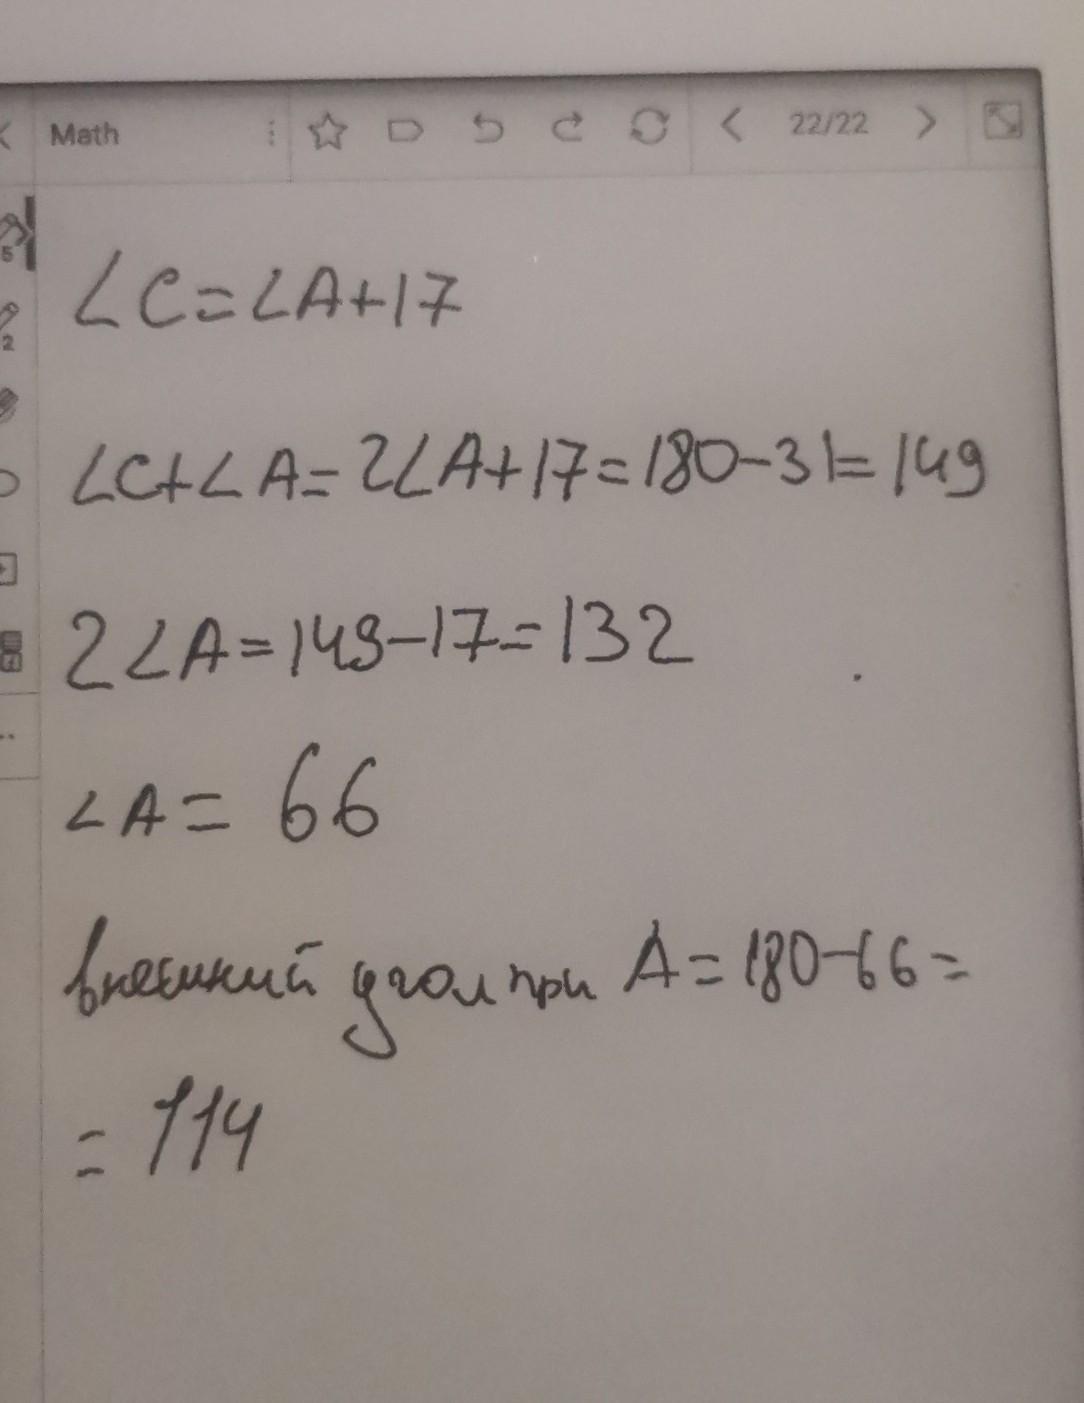 Math 22/22
5
2
∠C=∠A+17
∠C+∠A=2∠A+17=180-31=149
2∠A=149-17=132
∠A=66
внешний угол при A=180-66=
=114